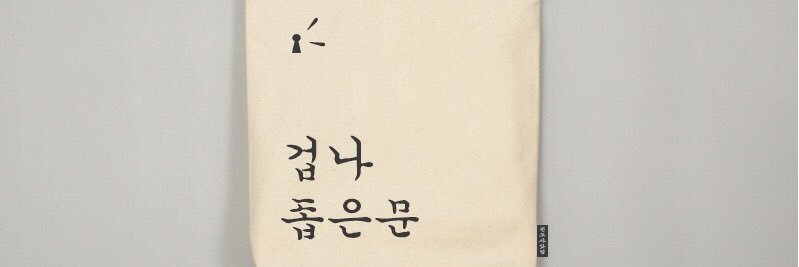 검나
좁은문